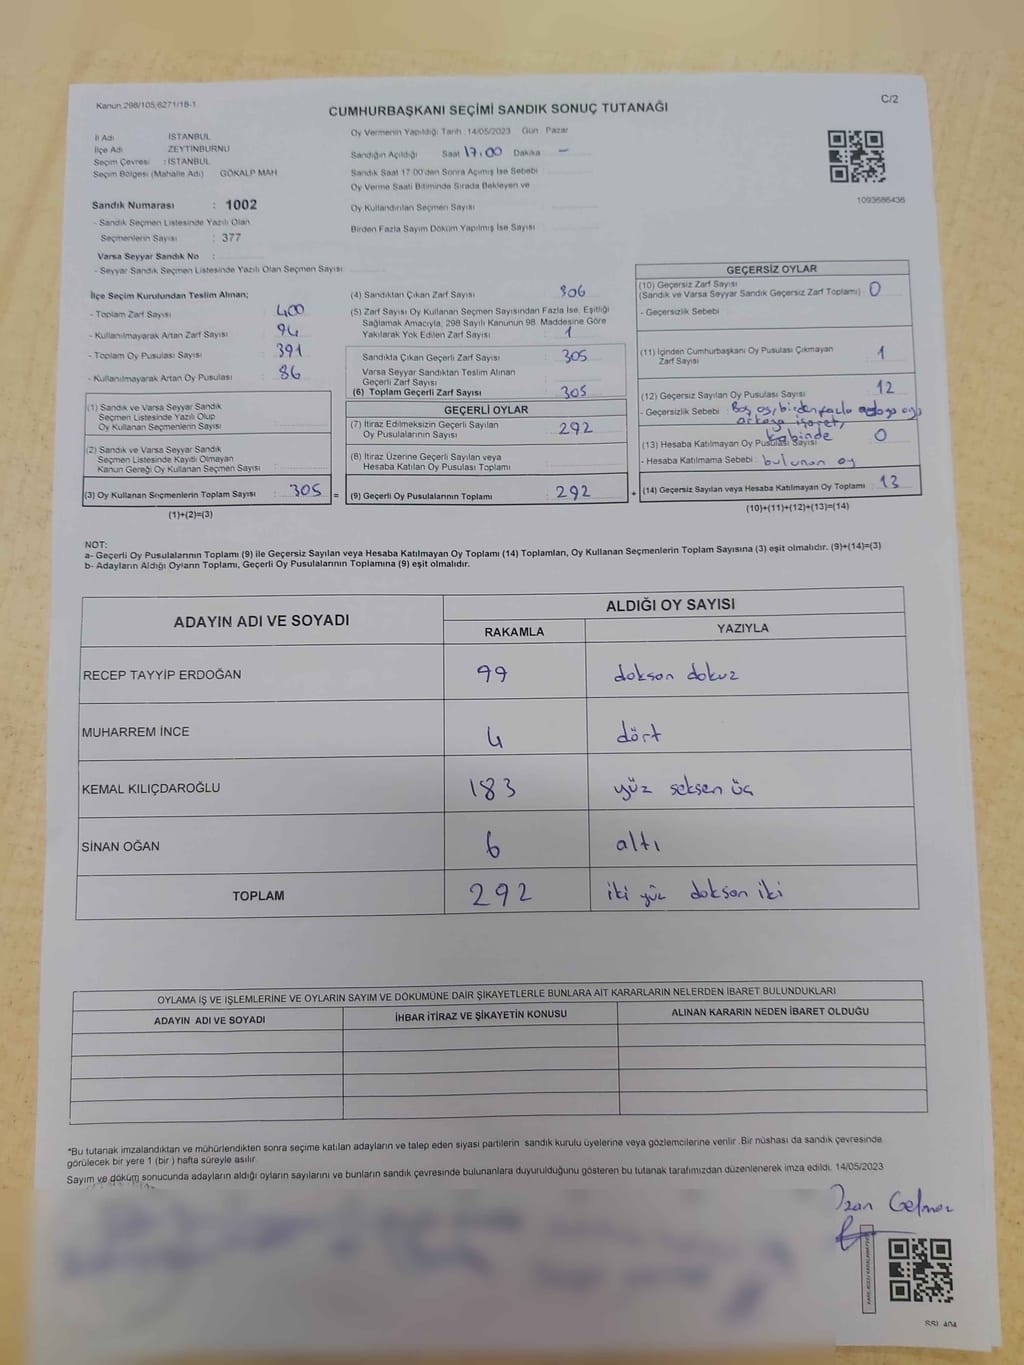 Kanun.298/105,6271/18-1
C/2
CUMHURBAŞKANI SEÇİMİ SANDIK SONUÇ TUTANAĞI
İl Adı İSTANBUL
İlçe Adı ZEYTİNBURNU
Seçim Çevresi : İSTANBUL
Seçim Bölgesi (Mahalle Adı) GÖKALP MAH
Sandık Numarası : 1002
- Sandık Seçmen Listesinde Yazılı Olan
Seçmenlerin Sayısı : 377
Varsa Seyyar Sandık No :
- Seyyar Sandık Seçmen Listesinde Yazılı Olan Seçmen Sayısı:
Oy Vermenin Yapıldığı Tarih : 14/05/2023 Gün : Pazar
Sandığın Açıldığı Saat 17:00 Dakika –
Sandık Saat 17 00'den Sonra Açımış İse Sebebi
Oy Verme Saati Bitiminde Sırada Bekleyen ve
Oy Kullandırılan Seçmen Sayısı
Birden Fazla Sayım Döküm Yapılmış İse Sayısı
1093686436
İlçe Seçim Kurulundan Teslim Alınan;
- Toplam Zarf Sayısı : 400
- Kullanılmayarak Artan Zarf Sayısı : 94
- Toplam Oy Pusulası Sayısı : 391
- Kullanılmayarak Artan Oy Pusulası : 86
(1) Sandık ve Varsa Seyyar Sandık
Seçmen Listesinde Yazılı Olup
Oy Kullanan Seçmenlerin Sayısı :
(2) Sandık ve Varsa Seyyar Sandık
Seçmen Listesinde Kayıtlı Olmayan
Kanun Gereği Oy Kullanan Seçmen Sayısı :
(3) Oy Kullanan Seçmenlerin Toplam Sayısı : 305 =
(1)+(2)=(3)
(4) Sandıktan Çıkan Zarf Sayısı : 306
(5) Zarf Sayısı Oy Kullanan Seçmen Sayısından Fazla İse, Eşitliği
Sağlamak Amacıyla; 298 Sayılı Kanunun 98. Maddesine Göre
Yakılarak Yok Edilen Zarf Sayısı : 1
Sandıkla Çıkan Geçerli Zarf Sayısı : 305
Varsa Seyyar Sandıktan Teslim Alınan
Geçerli Zarf Sayısı :
(6) Toplam Geçerli Zarf Sayısı : 305
GEÇERLİ OYLAR
(7) İtiraz Edilmeksizin Geçerli Sayılan
Oy Pusulalarının Sayısı : 292
(8) İtiraz Üzerine Geçerli Sayılan veya
Hesaba Katılan Oy Pusulası Toplamı :
(9) Geçerli Oy Pusulalarının Toplamı : 292 +
GEÇERSİZ OYLAR
(10) Geçersiz Zarf Sayısı
(Sandık ve Varsa Seyyar Sandık Geçersiz Zarf Toplamı) : 0
- Geçersizlik Sebebi :
(11) İçinden Cumhurbaşkanı Oy Pusulası Çıkmayan
Zarf Sayısı : 1
(12) Geçersiz Sayılan Oy Pusulası Sayısı : 12
- Geçersizlik Sebebi : Boş oy, birden fazla adaya oy,
arkaya işaret,
kabinde
(13) Hesaba Katılmayan Oy Pusulası Sayısı : 0
- Hesaba Katılmama Sebebi : bulunan oy
(14) Geçersiz Sayılan veya Hesaba Katılmayan Oy Toplamı : 13
(10)+(11)+(12)+(13)=(14)
NOT:
a- Geçerli Oy Pusulalarının Toplamı (9) ile Geçersiz Sayılan veya Hesaba Katılmayan Oy Toplamı (14) Toplamları, Oy Kullanan Seçmenlerin Toplam Sayısına (3) eşit olmalıdır. (9)+(14)=(3)
b- Adayların Aldığı Oyların Toplamı, Geçerli Oy Pusulalarının Toplamına (9) eşit olmalıdır.
ADAYIN ADI VE SOYADI
ALDIĞI OY SAYISI
RAKAMLA YAZIYLA
RECEP TAYYİP ERDOĞAN 99 doksan dokuz
MUHARREM İNCE 4 dört
KEMAL KILIÇDAROĞLU 183 yüz seksen üç
SİNAN OĞAN 6 altı
TOPLAM 292 iki yüz doksan iki
OYLAMA İŞ VE İŞLEMLERİNE VE OYLARIN SAYIM VE DÖKÜMÜNE DAİR ŞİKAYETLERLE BUNLARA AİT KARARLARIN NELERDEN İBARET BULUNDUKLARI
ADAYIN ADI VE SOYADI İHBAR İTİRAZ VE ŞİKAYETİN KONUSU ALINAN KARARIN NEDEN İBARET OLDUĞU
*Bu tutanak imzalandıktan ve mühürlendikten sonra seçime katılan adayların ve talep eden siyasi partilerin sandık kurulu üyelerine veya gözlemcilerine verilir .Bir nüshası da sandık çevresinde
görülecek bir yere 1 (bir) hafta süreyle asılır.
Sayım ve döküm sonucunda adayların aldığı oyların sayılarını ve bunların sandık çevresinde bulunanlara duyurulduğunu gösteren bu tutanak tarafımızdan düzenlenerek imza edildi. 14/05/2023